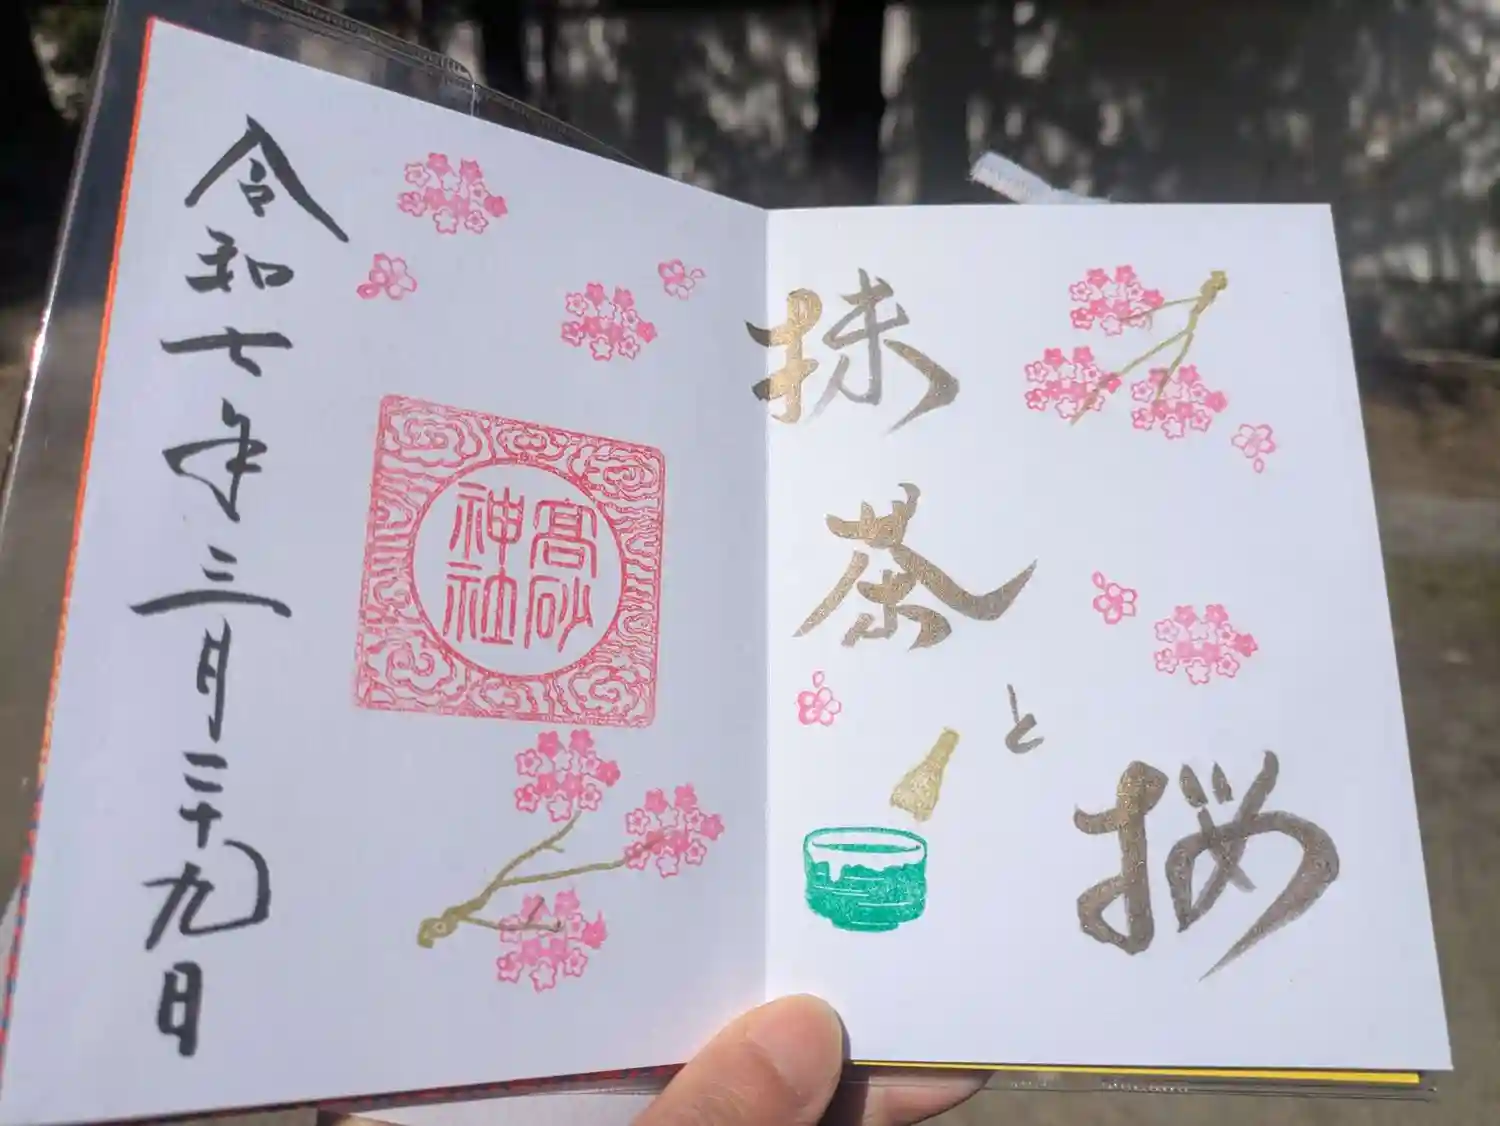 抹茶と桜
高砂
神社
令和七年三月二十九日